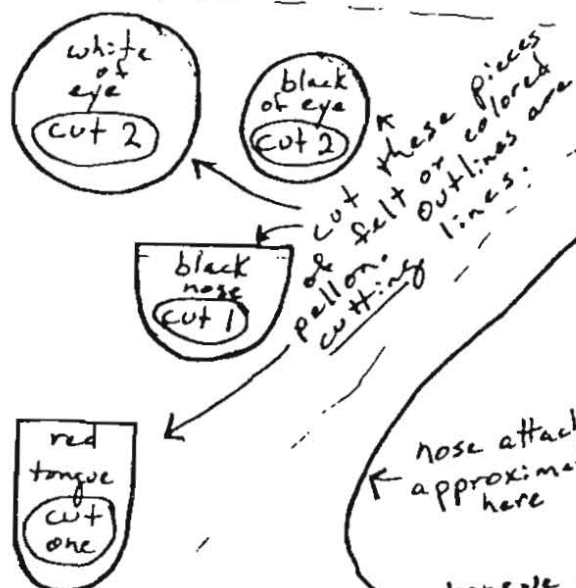 white
of
eye
cut 2
black
of eye
cut 2
cut these pieces
of felt or colored
pellon. Outlines are
cutting lines.
black
nose
cut 1
red
tongue
cut
one
nose attach
approxima
here